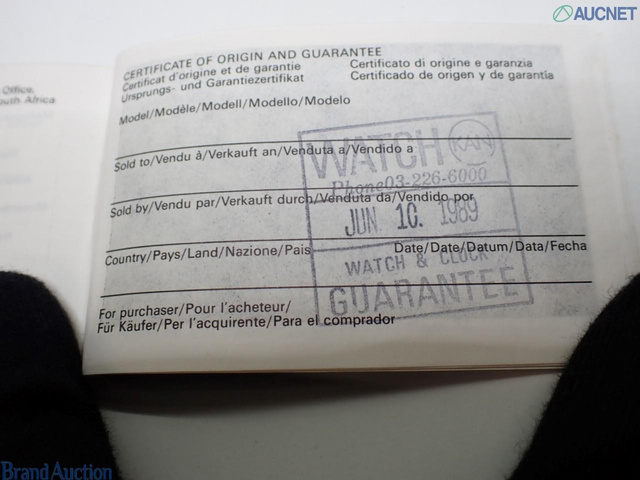 AUCNET
Office,
South Africa
CERTIFICATE OF ORIGIN AND GUARANTEE
Certificat d'origine et de garantie
Certificato di origine e garanzia
Ursprungs- und Garantiezertifikat
Certificado de origen y de garantía
Model/Modèle/Modell/Modello/Modelo
WATCH KAN
Sold to/Vendu à/Verkauft an/Venduta a/Vendido a
Phone 03-226-6000
Sold by/Vendu par/Verkauft durch/Venduta da/Vendido por
JUN 10. 1989
Country/Pays/Land/Nazione/Pais
Date/Date/Datum/Data/Fecha
WATCH & CLOCK
GUARANTEE
For purchaser/Pour l'acheteur/
Für Käufer/Per l'acquirente/Para el comprador
Brand Auction